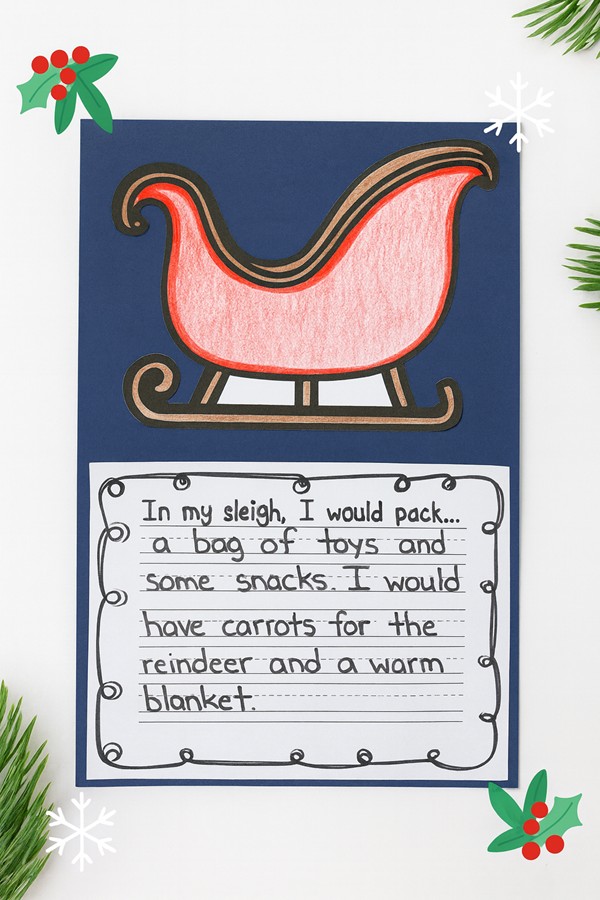 In my sleigh, I would pack...
a bag of toys and
some snacks. I would
have carrots for the
reindeer and a warm
blanket.